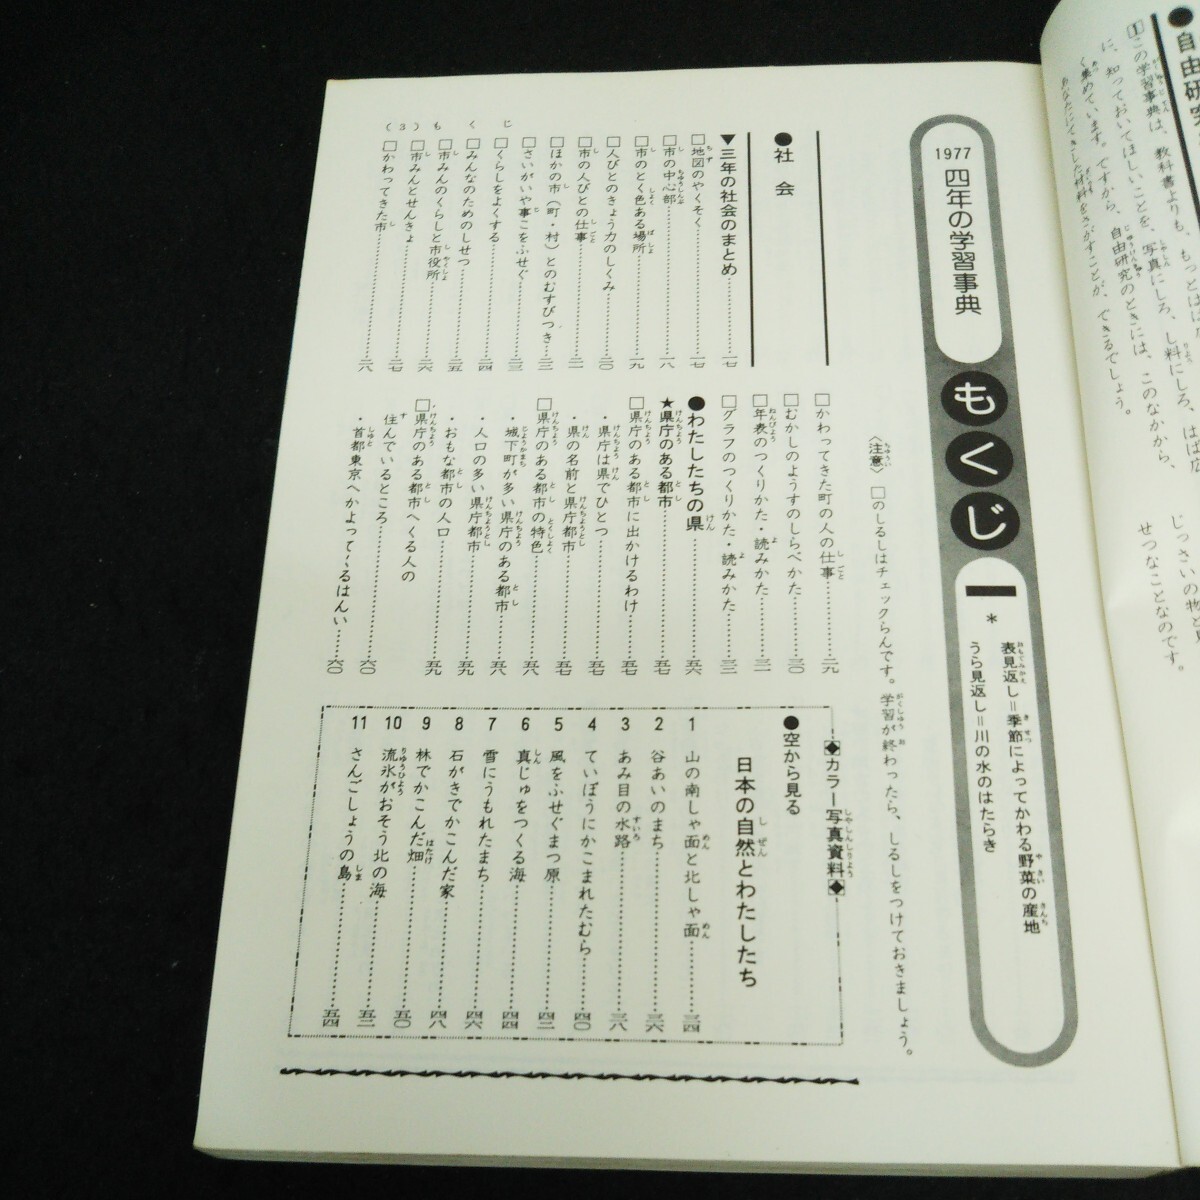 ●自由研究
1 この学習事典は、教科書よりも、もっとはば
に、知っておいてほしいことを、写真にしろ、し料にしろ、はば広
く集めています。ですから、自由研究のときには、このなかから、
あなたにてきした材料をさがすことが、できるでしょう。
じっさいの物と
せつなことなのです。
1977 四年の学習事典 もくじ
＊
表見返し＝季節によってかわる野菜の産地
うら見返し＝川の水のはたらき
〈注意〉 □のしるしはチェックらんです。学習が終わったら、しるしをつけておきましょう。
●社会
▼三年の社会のまとめ……一七
□地図のやくそく……一七
□市の中心部……一八
□市のとく色ある場所……一九
□人びとのきょう力のしくみ……二〇
□市の人びとの仕事……二一
□ほかの市（町・村）とのむすびつき……二二
□さいがいや事こをふせぐ……二三
□くらしをよくする……二四
□みんなのためのしせつ……二五
□市みんのくらしと市役所……二六
□市みんとせんきょ……二七
□かわってきた市……二八
□かわってきた町の人の仕事……二九
□むかしのようすのしらべかた……三〇
□年表のつくりかた・読みかた……三一
□グラフのつくりかた・読みかた……三二
●わたしたちの県……五六
★県庁のある都市……五七
□県庁のある都市に出かけるわけ……五七
・県庁は県でひとつ……五七
・県の名前と県庁都市……五八
□県庁のある都市の特色……五八
・城下町が多い県庁のある都市……五八
・人口の多い県庁都市……五九
・おもな都市の人口……五九
□県庁のある都市へくる人の
住んでいるところ……六〇
・首都東京へかよってくるはんい……六〇
◆カラー写真資料◆
●空から見る
日本の自然とわたしたち
1 山の南しゃ面と北しゃ面……三四
2 谷あいのまち……三六
3 あみ目の水路……三八
4 ていぼうにかこまれたむら……四〇
5 風をふせぐまつ原……四二
6 真じゅをつくる海……四四
7 雪にうもれたまち……四六
8 石がきでかこんだ家……四八
9 林でかこんだ畑……五〇
10 流氷がおそう北の海……五二
11 さんごしょうの島……五四
（3）もくじ